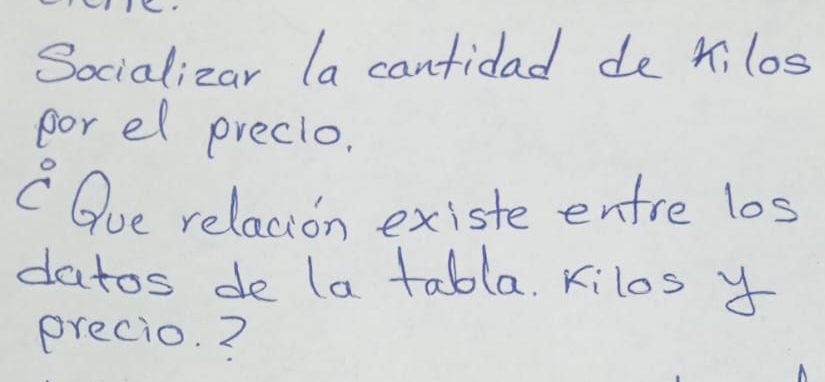 Socializar la cantidad de Kilos
por el precio.
¿Que relación existe entre los
datos de la tabla. Kilos y
precio.?